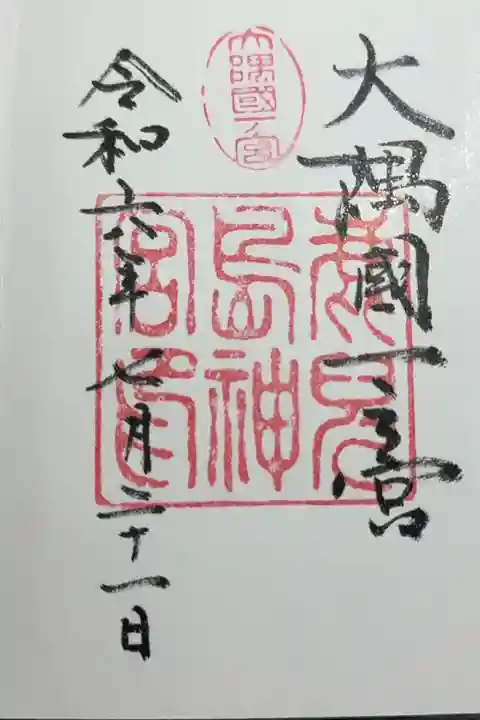 大隅國一之宮
大隅國一宮
鹿兒
島神
宮印
令和六年七月三十一日